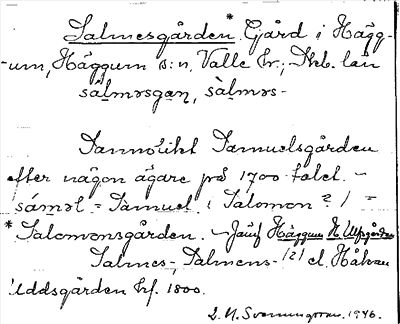 Salmesgården.* Gård i Hägg-
um, Häggum s:n, Valle hr; Skb. län
sálməsgaṇ, sàlməs-
Sannolikt Samuelsgården
efter någon ägare på 1700-talet. -
sáməl = Samuel. (Salomon?) =
* Salomonsgården. - Jämf Häggum N. Ulfsgården
Salmes-, Salmens- (2) el. Håkan
Uddsgården hf. 1800.
S. N. Svenningsson. 1946.